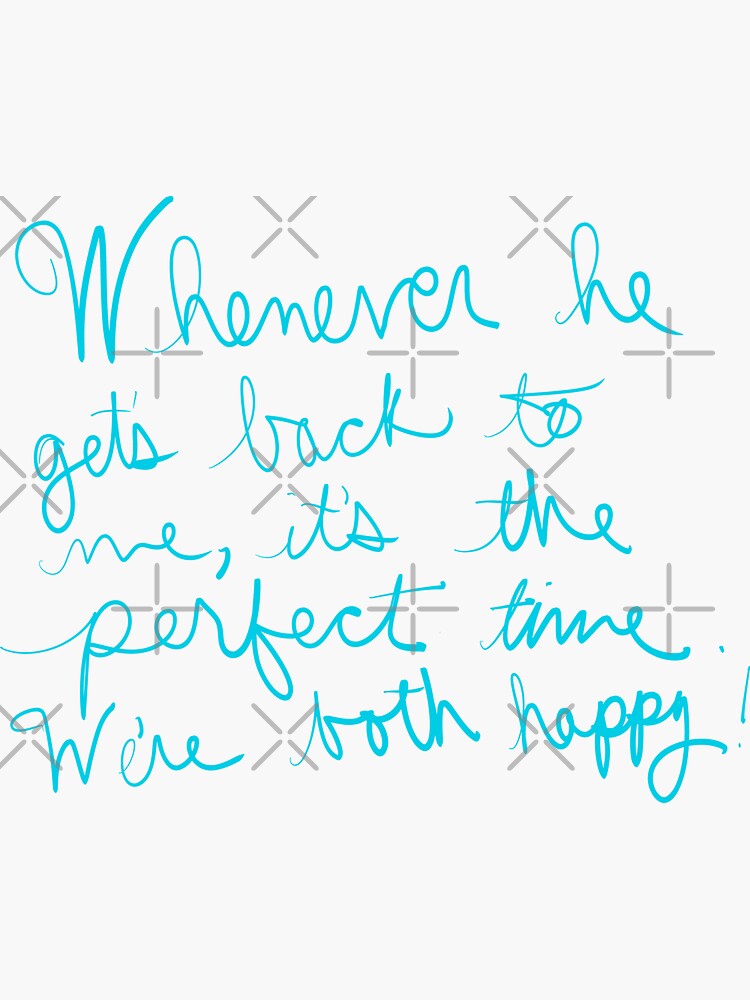 Whenever he
get's back to
me, it's the
perfect time.
We're both happy!